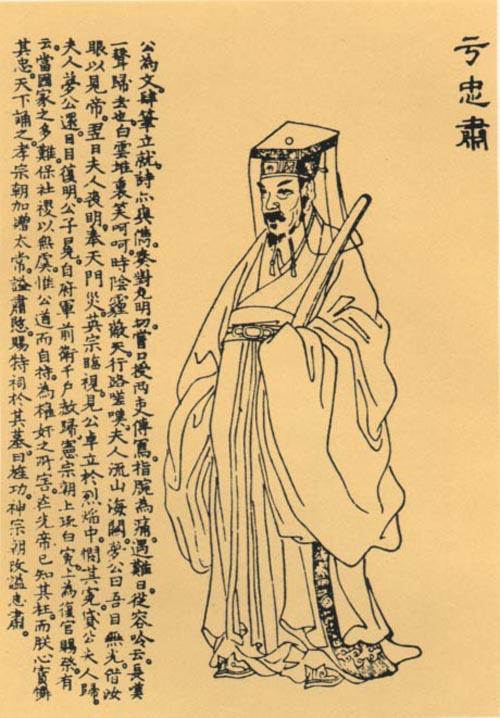 亏忠肅
公為文。肆筆立就。詩亦爽儁。奏對尤明切。嘗口授兩吏傳寫。指腕為痛。遇難日。從容吟云。長嘆
一聲歸去也。白雲堆裏笑呵呵。時陰霾蔽天。行路嗟嘆。夫人流山海關。夢公曰。吾目無光。借汝
眼以見帝。翌日夫人喪明。奉天門災。英宗臨視。見公卓立於烈焰中。憫其冤。貸公夫人歸。
夫人夢公還目。目復明。公子冕。自府軍前衛千戶赦歸。憲宗朝上疏白冤。上為復官賜祭。有
云。當國家之多難。保社稷以無虞。惟公道而自持。為權奸之所害。在先帝已知其枉。而朕心實憐
其忠。天下誦之。孝宗朝加贈太常。謚肅愍。賜特祠於其墓。曰旌功。神宗朝改謚忠肅。